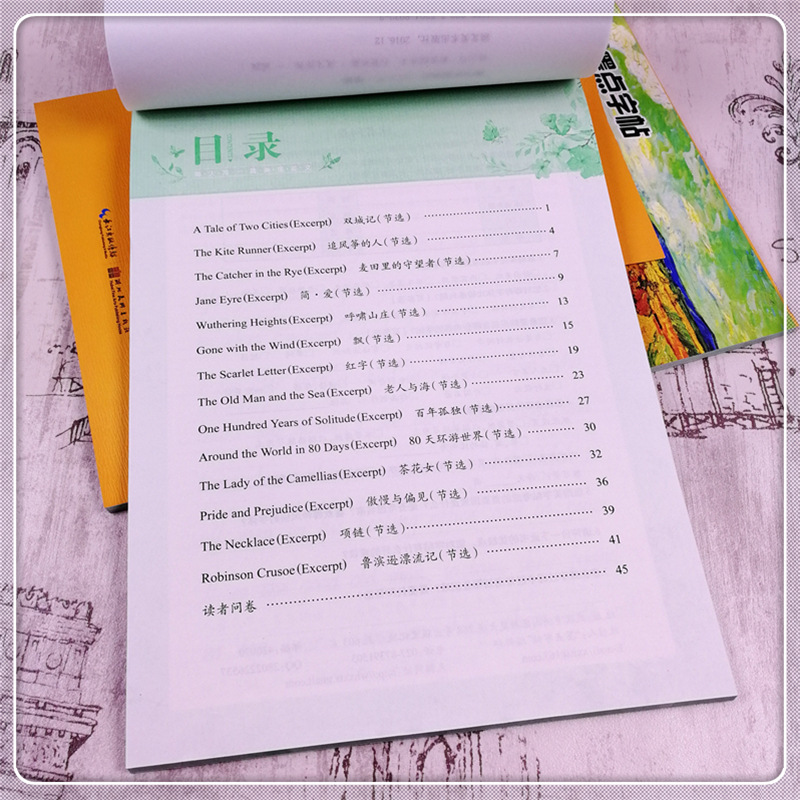 点字帖
目录
A Tale of Two Cities(Excerpt) 双城记(节选) ……………………1
The Kite Runner(Excerpt) 追风筝的人(节选) ……………………4
The Catcher in the Rye(Excerpt) 麦田里的守望者(节选)……………7
Jane Eyre(Excerpt) 简·爱(节选) ……………………9
Wuthering Heights(Excerpt) 呼啸山庄(节选) ……………………13
Gone with the Wind(Excerpt) 飘(节选) ……………………15
The Scarlet Letter(Excerpt) 红字(节选) ……………………19
The Old Man and the Sea(Excerpt) 老人与海(节选)……………23
One Hundred Years of Solitude(Excerpt) 百年孤独(节选)……………27
Around the World in 80 Days(Excerpt) 80天环游世界(节选) …………30
The Lady of the Camellias(Excerpt) 茶花女(节选) ……………32
Pride and Prejudice(Excerpt) 傲慢与偏见(节选) ……………36
The Necklace(Excerpt) 项链(节选)……………………39
Robinson Crusoe(Excerpt) 鲁滨逊漂流记(节选) ……………41
读者问卷 ……………………………………45